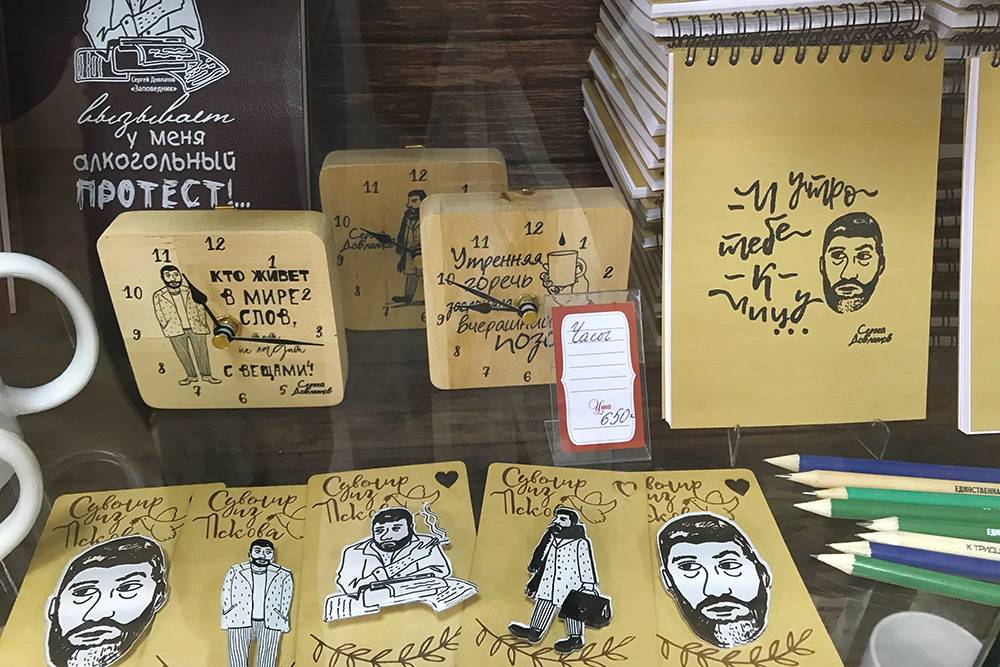 Сергей Довлатов
«Заповедник»
вызывает
у меня
алкогольный
ПРОТЕСТ!...
11 12
10
Сергей
Довлатов
12
11 1
10 2
9 3
8
7 6 5
КТО ЖИВЕТ
В МИРЕ
СЛОВ,
не ладит
С ВЕЩАМИ!
Сергей
Довлатов
12
11 1
10 2
9
8
7 6
Утренняя
горечь
вчерашний
ПОЗО
Часы
Цена
650
- И утро
тебе
- К -
лицу...
Сергей
Довлатов
Сувенир
из
Пскова
Сувенир
из
Пскова
Сувенир
из
Пскова
Сувенир
из
Пскова
Сувенир
из
Пскова
ЕДИНСТВЕННА
К ТРИДЦ